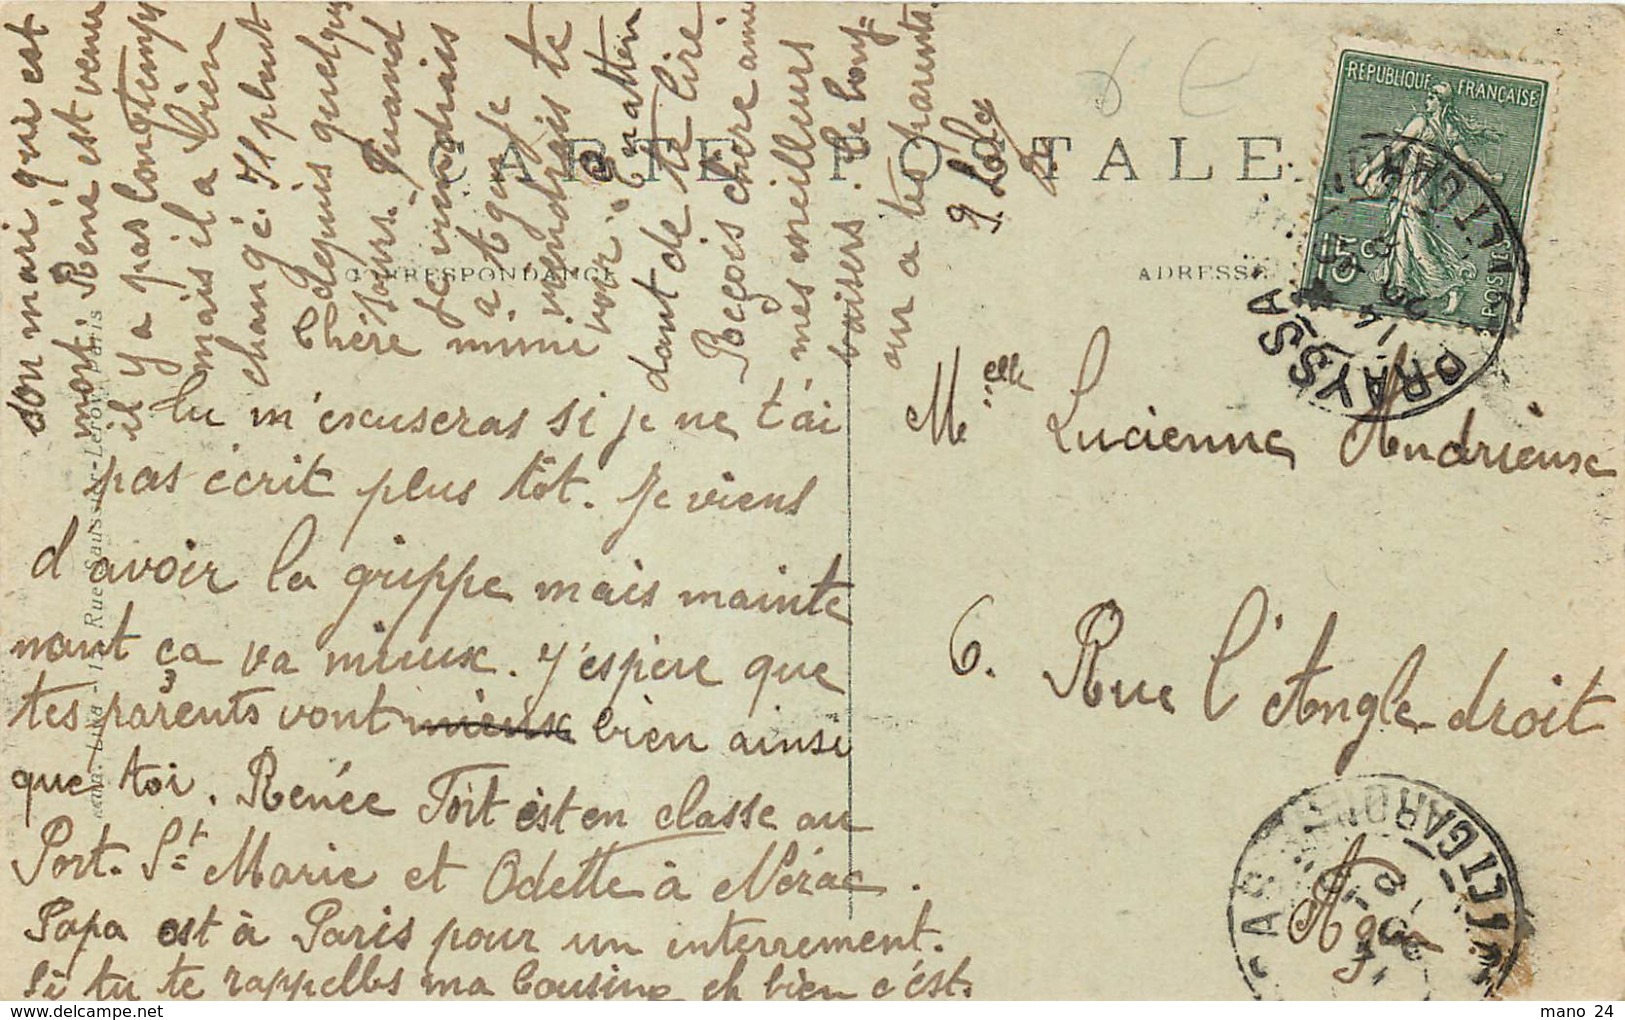 CARTE POSTALE
CORRESPONDANCE
ADRESSE
REPUBLIQUE FRANÇAISE
15c
POSTES
PRAYSSAS
LOT ET GARONNE
Chère mimi
Tu m'excuseras si je ne t'ai
pas écrit plus tôt. Je viens
d'avoir la grippe mais mainte
nant ça va mieux. J'espère que
tes parents vont mieux bien ainsi
que toi. Renée Toit est en classe au
Port. St Marie et Odette à Nérac.
Papa est à Paris pour un interrement.
Si tu te rappelles ma Cousine eh bien c'est
son mari qui est
mort. René est venu
il y a pas longtemps
mais il a bien
changé. Il pleut
depuis quelques
jours. Quand
je viendrais
à
que je
viendrais te
voir. En atten
dant de te lire.
Reçois chère amie
mes meilleurs
baisers. Le bonj=
our a tes parents.
Melle Lucienne Andrieux
6. Rue l'Angle droit
Agen
Rue Saussier-Leroy, Paris
mano 24